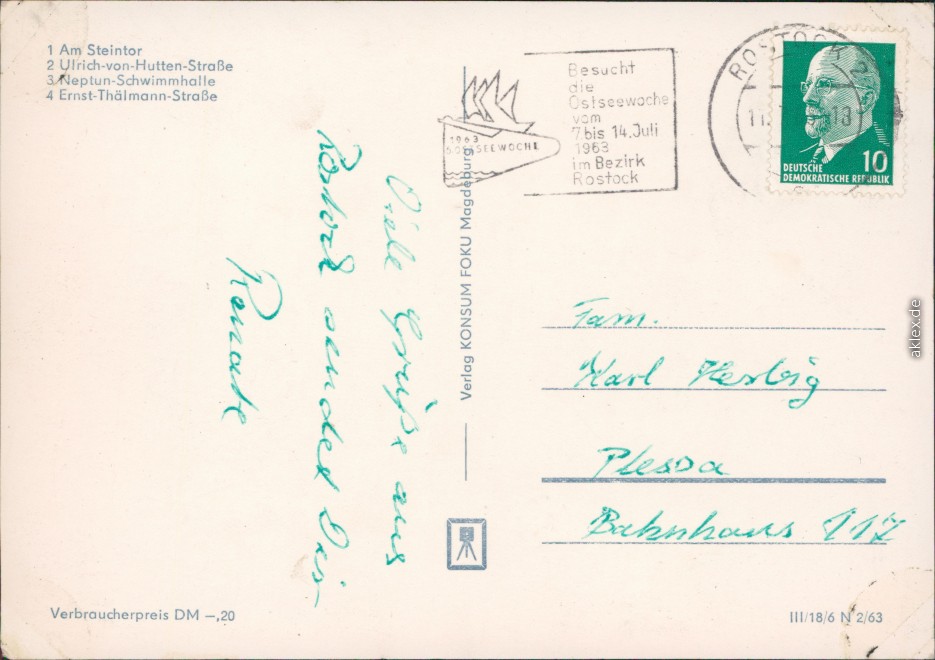 1 Am Steintor
2 Ulrich-von-Hutten-Straße
3 Neptun-Schwimmhalle
4 Ernst-Thälmann-Straße
1963
OSTSEEWOCHE
Besucht
die
Ostseewoche
vom
7. bis 14. Juli
1963
im Bezirk
Rostock
ROSTOCK 2
11
13
10
DEUTSCHE
DEMOKRATISCHE REPUBLIK
Viele Grüße aus
Rostock sendet Dir
Renate
Verlag KONSUM FOKU Magdeburg
Fam.
Karl Herbig
Plessa
Bahnhaus 117
Verbraucherpreis DM –,20
III/18/6 N 2/63
aklex.de